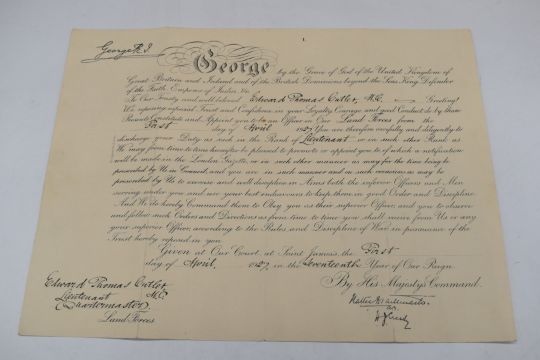 George R.I.
George by the Grace of God of the United Kingdom of
Great Britain and Ireland and of the British Dominions beyond the Seas King Defender
of the Faith, Emperor of India, &c.
To Our Trusty and well beloved Edward Thomas Cutler, M.C. Greeting!
We reposing especial Trust and Confidence in your Loyalty, Courage, and good Conduct, do by these
Presents Constitute and Appoint you to be an Officer in Our Land Forces from the
First day of April 1927. You are therefore carefully and diligently to
discharge your Duty as such in the Rank of Lieutenant or in such other Rank as
We may from time to time hereafter be pleased to promote or appoint you to of which a notification
will be made in the London Gazette, or in such other manner as may for the time being be
prescribed by Us in Council, and you are in such manner and on such occasions as may be
prescribed by Us to exercise and well discipline in Arms both the inferior Officers and Men
serving under you and use your best endeavours to keep them in good Order and Discipline.
And We do hereby Command them to Obey you as their superior Officer, and you to observe
and follow such Orders and Directions as from time to time you shall receive from Us, or any
your superior Officer, according to the Rules and Discipline of War, in pursuance of the
Trust hereby reposed in you.
Given at Our Court, at Saint James's, the First
day of April, 1927, in the Seventeenth Year of Our Reign
By His Majesty's Command.
Edward Thomas Cutler, M.C.
Lieutenant
(Quartermaster)
Land Forces